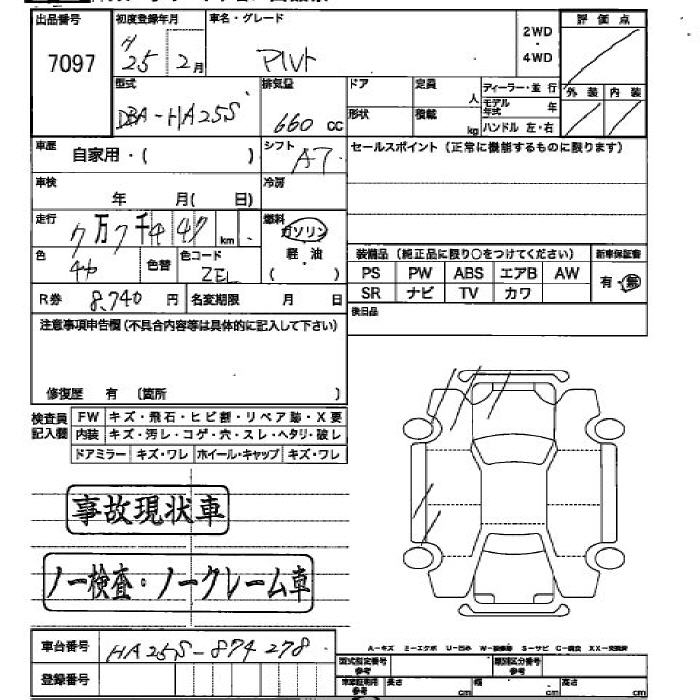 出品番号 初度登録年月 車名・グレード 2WD 評価点
7097 H25 2月 アルト ・ 4WD
型式 排気量 ドア 定員 人 ディーラー・並行 外装 内装
DBA-HA25S 660cc 形状 積載 kg モデル年式 年
ハンドル 左・右
車歴 自家用・( ) シフト AT セールスポイント(正常に機能するものに限ります)
車検 年 月( 日) 冷房
走行 7万7千 km 燃料 ガソリン
軽・油
( )
色 色替 色コード ZEL 装備品(純正品に限り○をつけてください) 新車保証書
PS PW ABS エアB AW 有・無
R券 8,740円 名変期限 月 日 SR ナビ TV カワ
注意事項申告欄(不具合内容等は具体的に記入して下さい) 後日品
修復歴 有 〔箇所 〕
検査員記入欄 FW キズ・飛石・ヒビ割・リペア跡・X要
内装 キズ・汚レ・コゲ・穴・スレ・ヘタリ・破レ
ドアミラー キズ・ワレ ホイール・キャップ キズ・ワレ
事故現状車
ノー検査・ノークレーム車
車台番号 HA25S-874278
A-キズ E-エクボ U-凹み S-サビ C-腐食 XX-交換済
登録番号 型式指定番号 参考 類別区分番号 参考
車庫証明用 参考 長さ cm 幅 cm 高さ cm